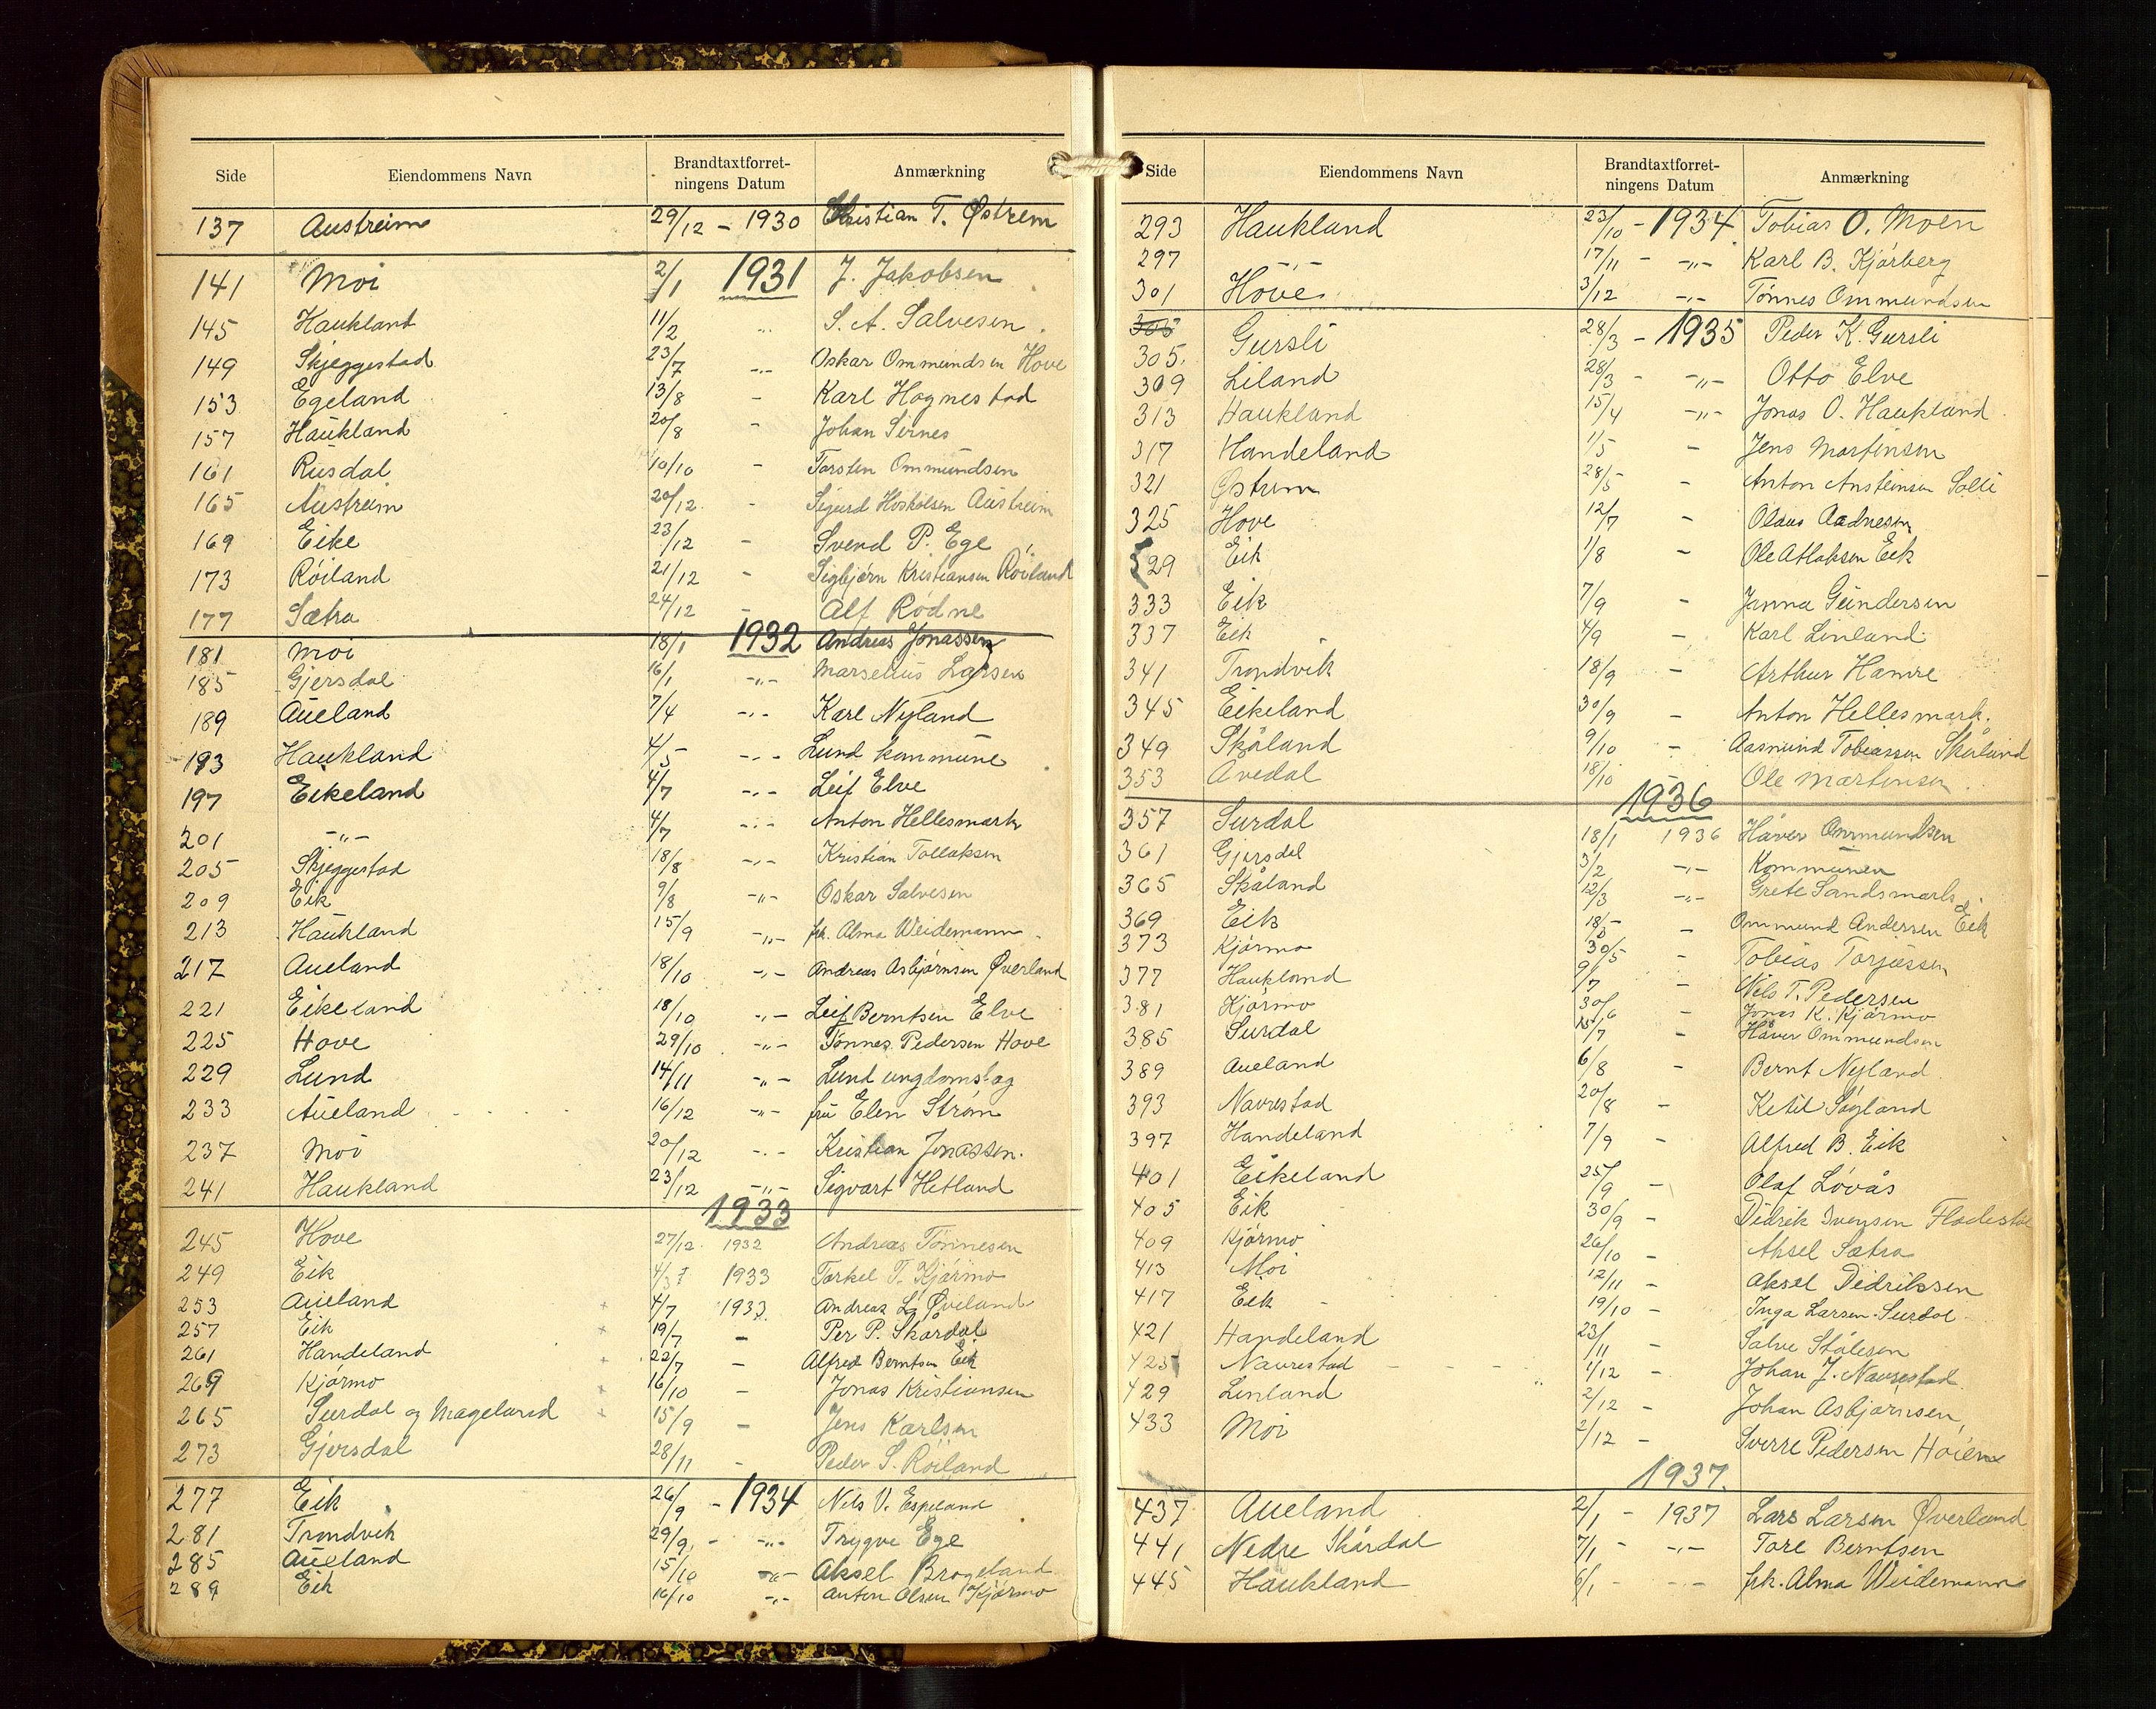 Side Eiendommens Navn Brandtaxtforret-ningens Datum Anmærkning
137 Austreim 29/12 - 1930 Christian T. Østrem
141 Moi 2/1 1931 J. Jakobsen
145 Haukland 11/2 " S. A. Salvesen.
149 Skjeggestad 23/7 -"- Oskar Ommundsen Hove
153 Egeland 13/8 - Karl Hognestad
157 Haukland 20/8 - Johan Sirnes
161 Rusdal 10/10 - Torsten Ommundsen
165 Austreim 20/12 - Sigurd Austreim
169 Eike 23/12 - Svend P. Ege
173 Röiland 21/12 - Sigbjørn Kristiansen Röiland
177 Sætra 24/12 - Alf Rødne
181 Moi 18/1 1932 Andreas Jonassen
185 Gjersdal 16/1 -"- Marselius Larsen
189 Aueland 7/4 -"- Karl Nyland
193 Haukland 4/5 -"- Lund kommune
197 Eikeland 4/7 -"- Leif Elve
201 -"- 4/7 -"- Anton Hellesmark
205 Skjeggestad 18/8 -"- Kristian Tollaksen
209 Eik 9/8 -"- Oskar Salvesen
213 Haukland 15/9 -"- frk. Alma Weidemann
217 Aueland 18/10 -"- Andreas Asbjørnsen Øverland
221 Eikeland 18/10 -"- Leif Berntsen Elve
225 Hove 29/10 -"- Tønnes Pedersen Hove
229 Lund 14/11 -"- Lund ungdomslag
233 Aueland 16/12 -"- fru Elen Strøm
237 Moi 20/12 -"- Kristian Jonassen.
241 Haukland 23/12 -"- Sigvart Hetland
1933
245 Hove 27/12 1932 Andreas Tönnesen
249 Eik 4/7 1933 Torkel T. Kjörmo
253 Aueland 4/7 1933 Andreas L. Øveland
257 Eik 19/7 - Per P. Skårdal
261 Handeland 22/7 - Alfred Berntsen Eik
269 Kjörmo 16/10 - Jonas Kristiansen
265 Surdal og Mageland 15/9 - Jens Karlsen
273 Gjersdal 28/11 - Peder S. Röiland
277 Eik 26/9 - 1934 Nils V. Espeland
281 Trondvik 29/9 - -"- Trygve Ege
285 Aueland 15/10 -"- Aksel Brogeland
289 Eik 16/10 -"- Anton Olsen Kjörmo
Side Eiendommens Navn Brandtaxtforret-ningens Datum Anmærkning
293 Haukland 23/10 - 1934 Tobias O. Moen
297 -"- 17/11 - -"- Karl B. Kjörberg
301 Hove 3/12 -"- Tönnes Ommundsen
305. Gursli 28/3 - 1935 Peder K. Gursli
309 Liland 28/3 - -"- Otto Elve
313 Haukland 15/4 -"- Jonas O. Haukland.
317 Handeland 1/5 - Jens Martinsen
321 Østrem 28/5 - Anton Ansteinsen Solli
325 Hove 12/7 - Olaus Aadnesen
329 Eik 1/8 - Ole Atlaksen Eik
333 Eik 7/9 - Janna Gundersen
337 Eik 4/9 - Karl Linland
341 Trondvik 18/9 - Arthur Hamre
345 Eikeland 30/9 - Anton Hellesmark.
349 Skåland 9/10 - Aasmund Tobiassen Skåland
353 Avedal 18/10 - Ole Martinsen
1936
357 Surdal 18/1 1936 Håver Ommundsen
361 Gjersdal 3/2 -"- Kommunen
365 Skåland 12/3 -"- Grete Sandsmark
369 Eik 18/5 - Ommund Andersen Eik
373 Kjörmo 30/5 - Tobias Torjussen
377 Haukland 9/7 - Nils T. Pedersen
381 Kjörmo 30/6 - Jonas K. Kjörmo
385 Surdal 15/7 - Håver Ommundsen
389 Aueland 6/8 - Bernt Nyland
393 Navrestad 20/8 - Ketil Søyland
397 Handeland 7/9 - Alfred B. Eik
401 Eikeland 25/9 - Olaf Lövås
405 Eik 30/9 - Didrik Ivensen
409 Kjörmo 26/10 - Aksel Sætra
413 Moi 12/11 - Aksel Didriksen
417 Eik 19/10 - Inga Larsen Surdal
421 Handeland 23/11 - Salve Stålesen
425 Navrestad 1/12 - Johan J. Navrestad
429 Linland 2/12 - Johan Asbjørnsen
433 Moi 2/12 - Sverre Pedersen
1937.
437 Aueland 2/1 - 1937 Lars Larsen Øverland
441 Nedre Skårdal 7/1 - -"- Tore Berntsen
445 Haukland 6/1 - -"- frk. Alma Weidemann